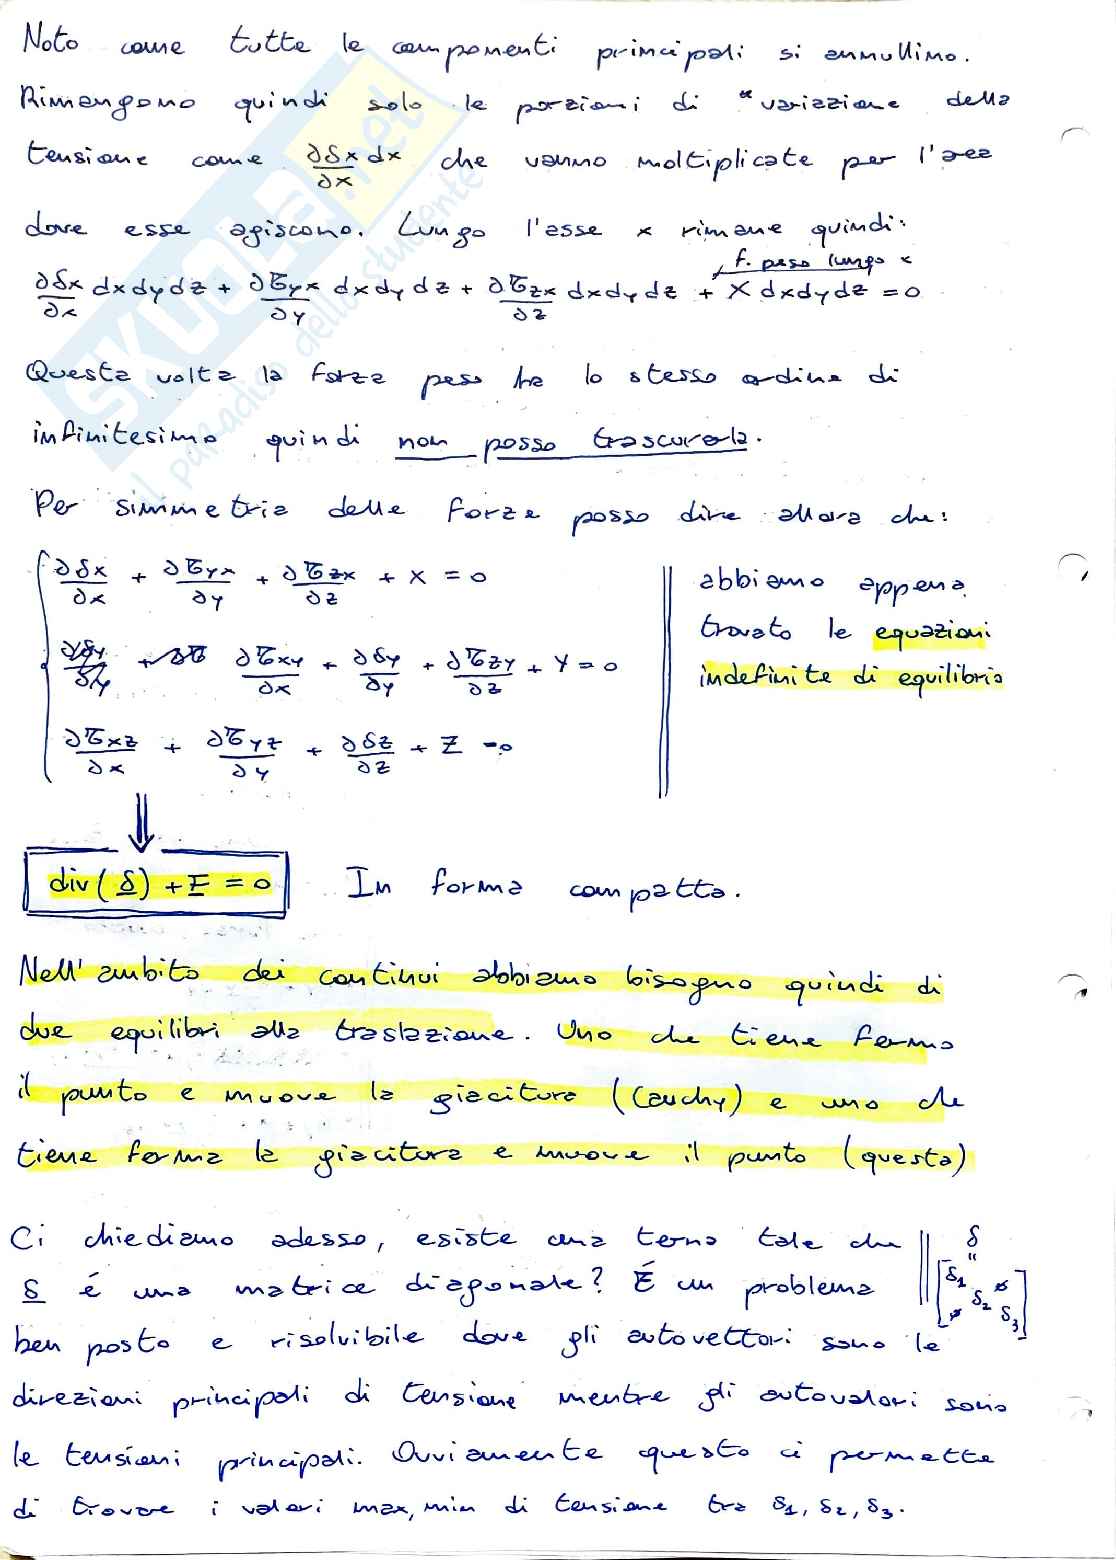 Noto come tutte le componenti principali si annullino.
Rimangono quindi solo le porzioni di "variazione della
tensione come ∂δx/∂x dx che vanno moltiplicate per l'area
dove esse agiscono. Lungo l'asse x rimane quindi:
f. peso lungo x
∂δx/∂x dxdydz + ∂τyx/∂y dxdydz + ∂τzx/∂z dxdydz + X dxdydz = 0
Questa volta la forza peso ha lo stesso ordine di
infinitesimo quindi non posso trascurarla.
Per simmetria delle forze posso dire allora che:
∂δx/∂x + ∂τyx/∂y + ∂τzx/∂z + X = 0
∂τxy/∂x + ∂δy/∂y + ∂τzy/∂z + Y = 0
∂τxz/∂x + ∂τyz/∂y + ∂δz/∂z + Z = 0
abbiamo appena
trovato le equazioni
indefinite di equilibrio
div(δ) + F = 0 In forma compatta.
Nell'ambito dei continui abbiamo bisogno quindi di
due equilibri alla traslazione. Uno che tiene fermo
il punto e muove la giacitura (Cauchy) e uno che
tiene ferma la giacitura e muove il punto (questa)
Ci chiediamo adesso, esiste una terna tale che
δ é una matrice diagonale? É un problema
ben posto e risolvibile dove gli autovettori sono le
direzioni principali di tensione mentre gli autovalori sono
le tensioni principali. Ovviamente questo ci permette
di trovare i valori max, min di tensione tra δ1, δ2, δ3.
δ
"
δ1 ø
δ2
ø δ3
SKUOLA.net
il paradiso dello studente